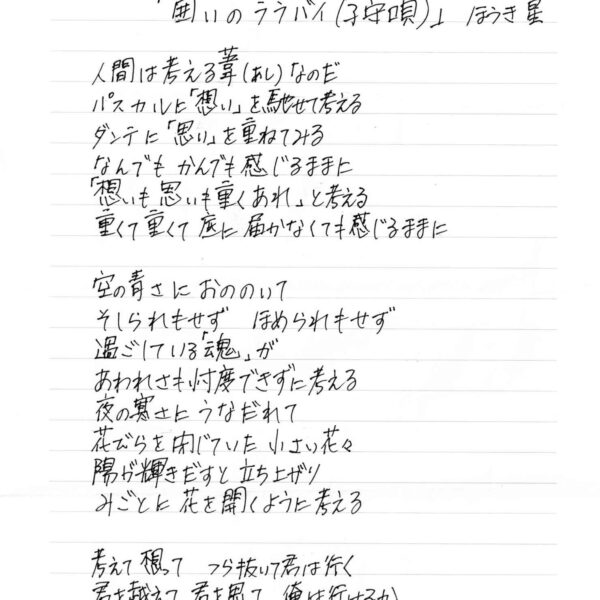 「囲いのララバイ(子守唄)」 ほうき星
人間は考える葦(あし)なのだ
パスカルに「想い」を馳せて考える
ダンテに「思い」を重ねてみる
なんでも かんでも感じるままに
「想いも思いも重くあれ」と考える
重くて重くて 底に 届かなくても感じるままに
空の青さに おののいて
そしられもせず ほめられもせず
過ごしている「魂」が
あわれさも忖度できずに考える
夜の寒さに うなだれて
花びらを閉じていた 小さい花々
陽が輝きだすと 立ち上がり
みごとに 花を開くように考える
考えて 想って つら抜いて君は行く
君を越えて 君を思って 俺は行けるか